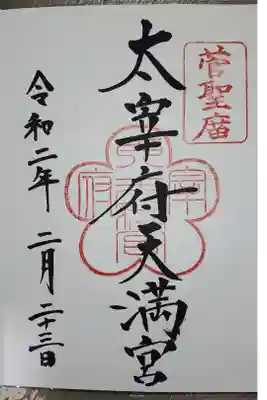 菅聖庿
太宰府天満宮
令和二年 二月 二十三日